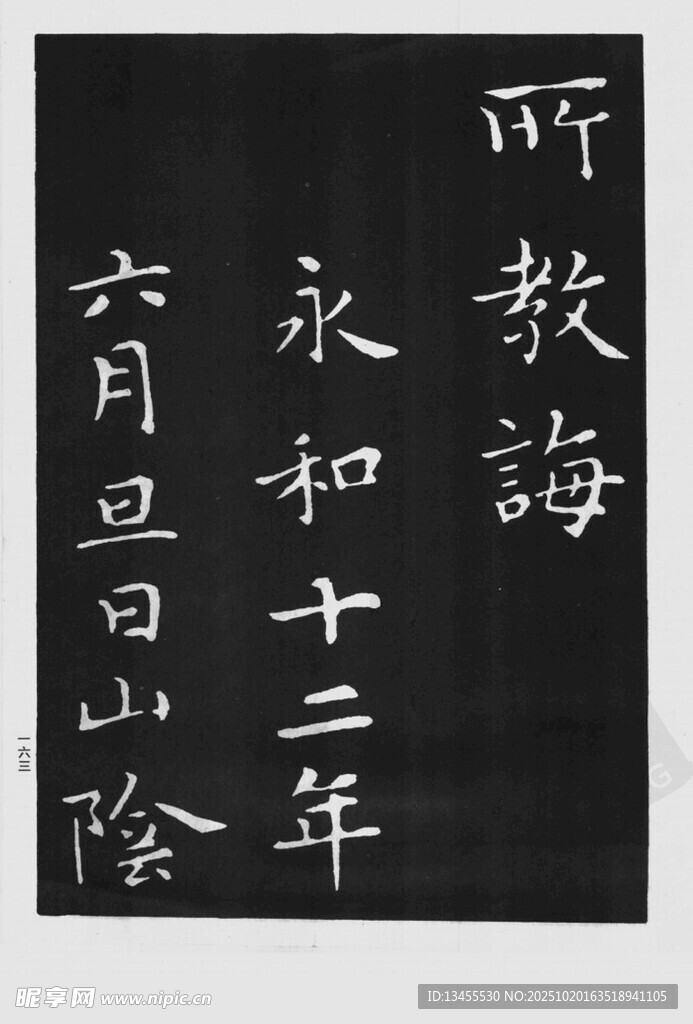 所教誨
永和十二年
六月旦日山陰
一六三
昵享网 www.nipic.cn
ID:13455530 NO:20251020163518941105